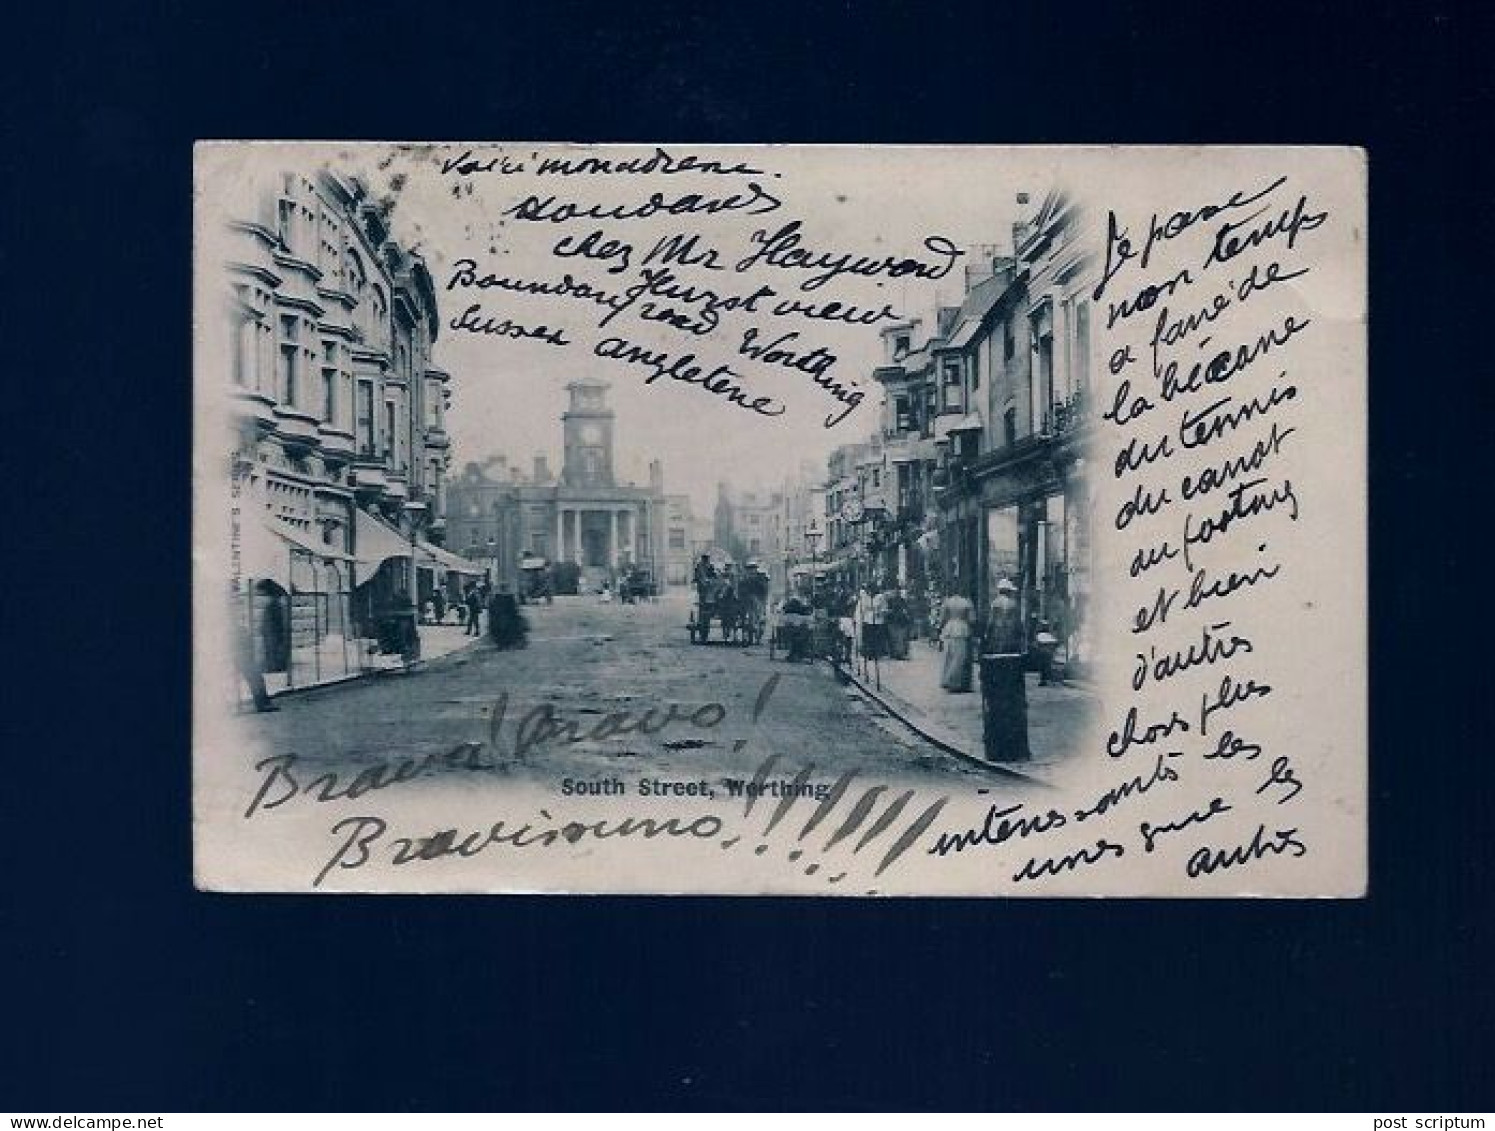 Voici mon adresse.
Houdard
chez Mr Hayward
Hurst view
Boundary road Worthing
Sussex angleterre
Je passe
mon temps
a faire de
la bécane
du tennis
du canot
du footing
et bien
d'autres
choses plus
intéressantes les
unes que les
autres
Brava! Bravo!
Bravissimo!!!!!!!
South Street, Worthing
VALENTINE'S SERIES
www.delcampe.net
post scriptum